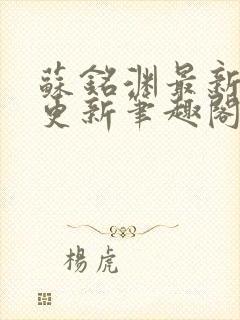 蘇銘淵最新
更新筆趣閣
楊虎